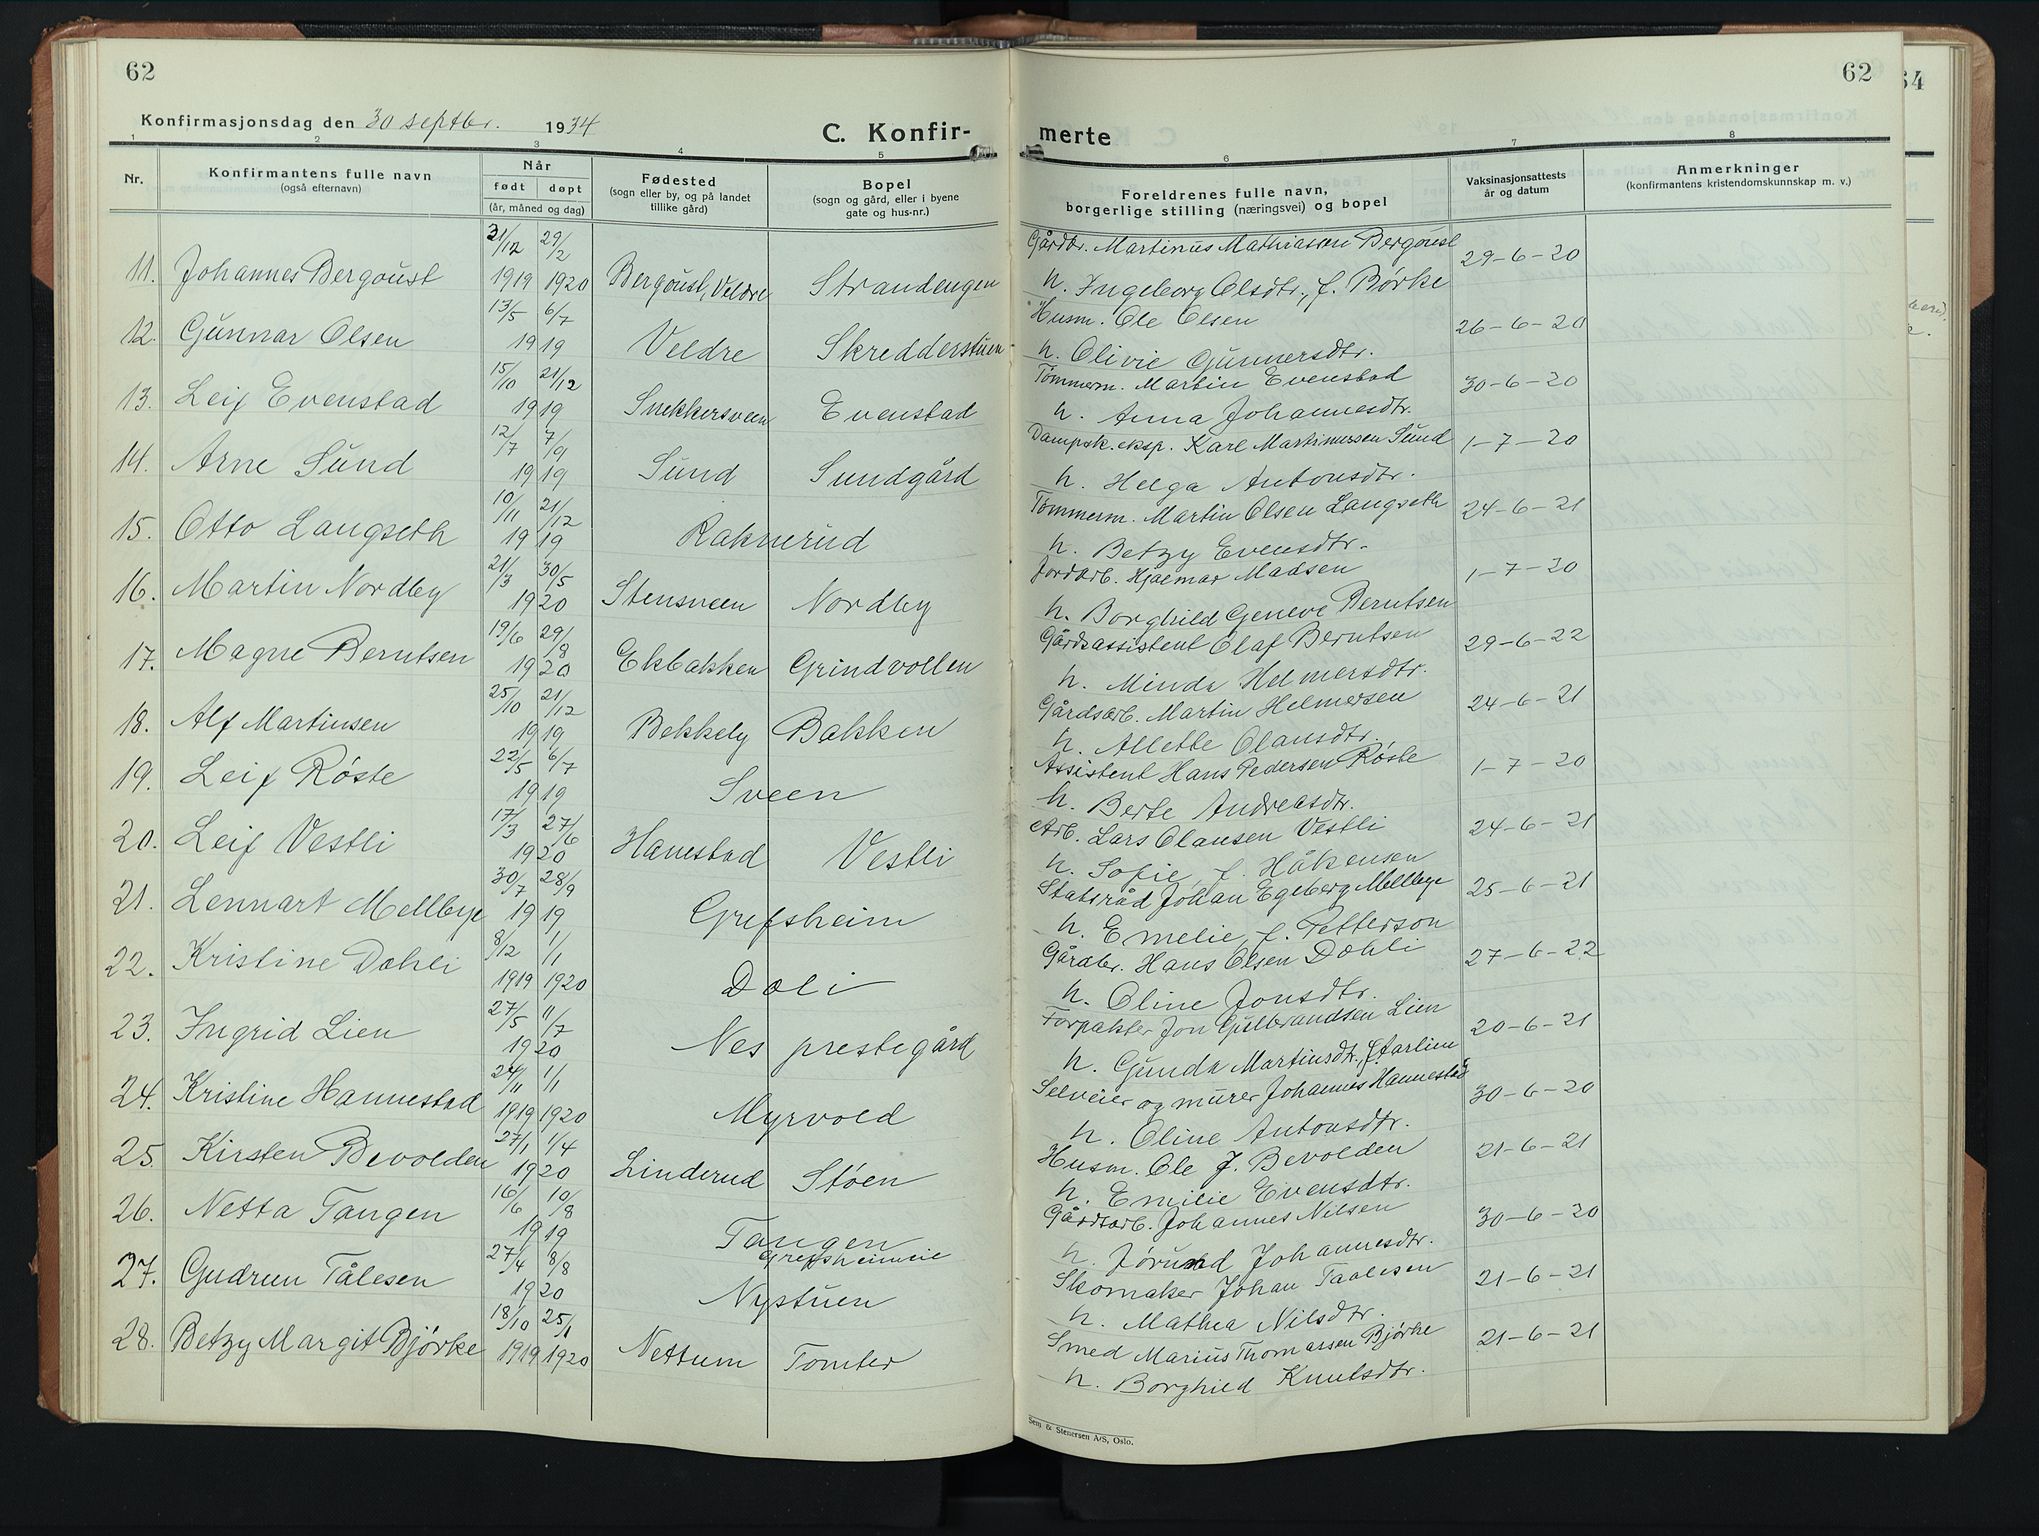 62
Konfirmasjonsdag den 30 septbr. 1934
C. Konfir-
1 2 3 4 5
Nr.
Konfirmantens fulle navn
(også efternavn)
Når
født døpt
(år, måned og dag)
Fødested
(sogn eller by, og på landet
tillike gård)
Bopel
(sogn og gård, eller i byene
gate og hus-nr.)
21/12 29/2
11. Johannes Bergoust 1919 1920 Bergoust, Veldre Strandengen
13/5 6/7
12. Gunnar Olsen 1919 Veldre Skredderstuen
15/10 21/12
13. Leif Evenstad 1919 Snekkersveen Evenstad
12/7 7/9
14. Arne Sund 1919 Sund Sundgård
10/11 21/12
15. Otto Langseth 1919 Raknerud
21/3 30/5
16. Martin Nordby 1920 Stensveen Nordby
19/6 29/8
17. Magne Berntsen 1920 Ekbakken Grindvollen
25/10 21/12
18. Alf Martinsen 1919 Bekkely Bakken
22/5 6/7
19. Leif Røste 1919 Sveen
17/3 27/6
20. Leif Vestli 1920 Hanestad Vestli
30/7 28/9
21. Lennart Mellbye 1919 Grefsheim
8/12 1/1
22. Kristine Dæhli 1919 1920 Dæli
27/5 11/7
23. Ingrid Lien 1920 Nes prestegård
24/11 1/1
24. Kristine Hannestad 1919 1920 Myrvold
27/1 1/4
25. Kirsten Bevolden 1920 Linderud Støen
16/6 10/8
26. Netta Tangen 1919 Tangen
27/4 8/8 Grefsheimeie
27. Gudrun Tålesen 1920 Nystuen
18/10 25/1
28. Betzy Margit Bjørke 1919 1920 Nettum Tomter
62
merte
6 7 8
Foreldrenes fulle navn,
borgerlige stilling (næringsvei) og bopel
Vaksinasjonsattests
år og datum
Anmerkninger
(konfirmantens kristendomskunnskap m. v.)
Gårdbr. Martinus Mathiassen Bergoust 29-6-20
h. Ingeborg Olsdtr., f. Børke
Husm. Ole Olsen 26-6-20
h. Olivie Gunnersdtr.
Tømmerm. Martin Evenstad 30-6-20
h. Anna Johannesdtr.
Dampsk.eksp. Karl Martinussen Sund 1-7-20
h. Helga Antonsdtr.
Tømmerm. Martin Olsen Langseth 24-6-21
h. Betzy Evensdtr.
Jordarb. Hjalmar Madsen 1-7-20
h. Borghild Geneve Berntsen
Gårdsassistent Olaf Berntsen 29-6-22
h. Minda Helmersdtr.
Gårdsarb. Martin Helmersen 24-6-21
h. Allette Olausdtr.
Assistent Hans Pedersen Røste 1-7-20
h. Berte Andreasdtr.
Arb. Lars Olausen Vestli 24-6-21
h. Sofie, f. Håkensen
Statsråd Johan Egeberg Mellbye 25-6-21
h. Emelie, f. Petterson
Gårdbr. Hans Olsen Dæhli 27-6-22
h. Oline Jonsdtr.
Forpakter Jon Gulbrandsen Lien 20-6-21
h. Gunda Martinsdtr.,
Selveier og murer Johannes Hannestad 30-6-20
h. Oline Antonsdtr.
Husm. Ole J. Bevolden 21-6-21
h. Emilie Evensdtr.
Gårdsarb. Johannes Nilsen 30-6-20
h. Jørund Johannesdtr.
Skomaker Johan Taalesen 21-6-21
h. Mathea Nilsdtr.
Smed Marius Thomassen Bjørke 21-6-21
h. Borghild Knutsdtr.
Sem & Stenersen A/S, Oslo.